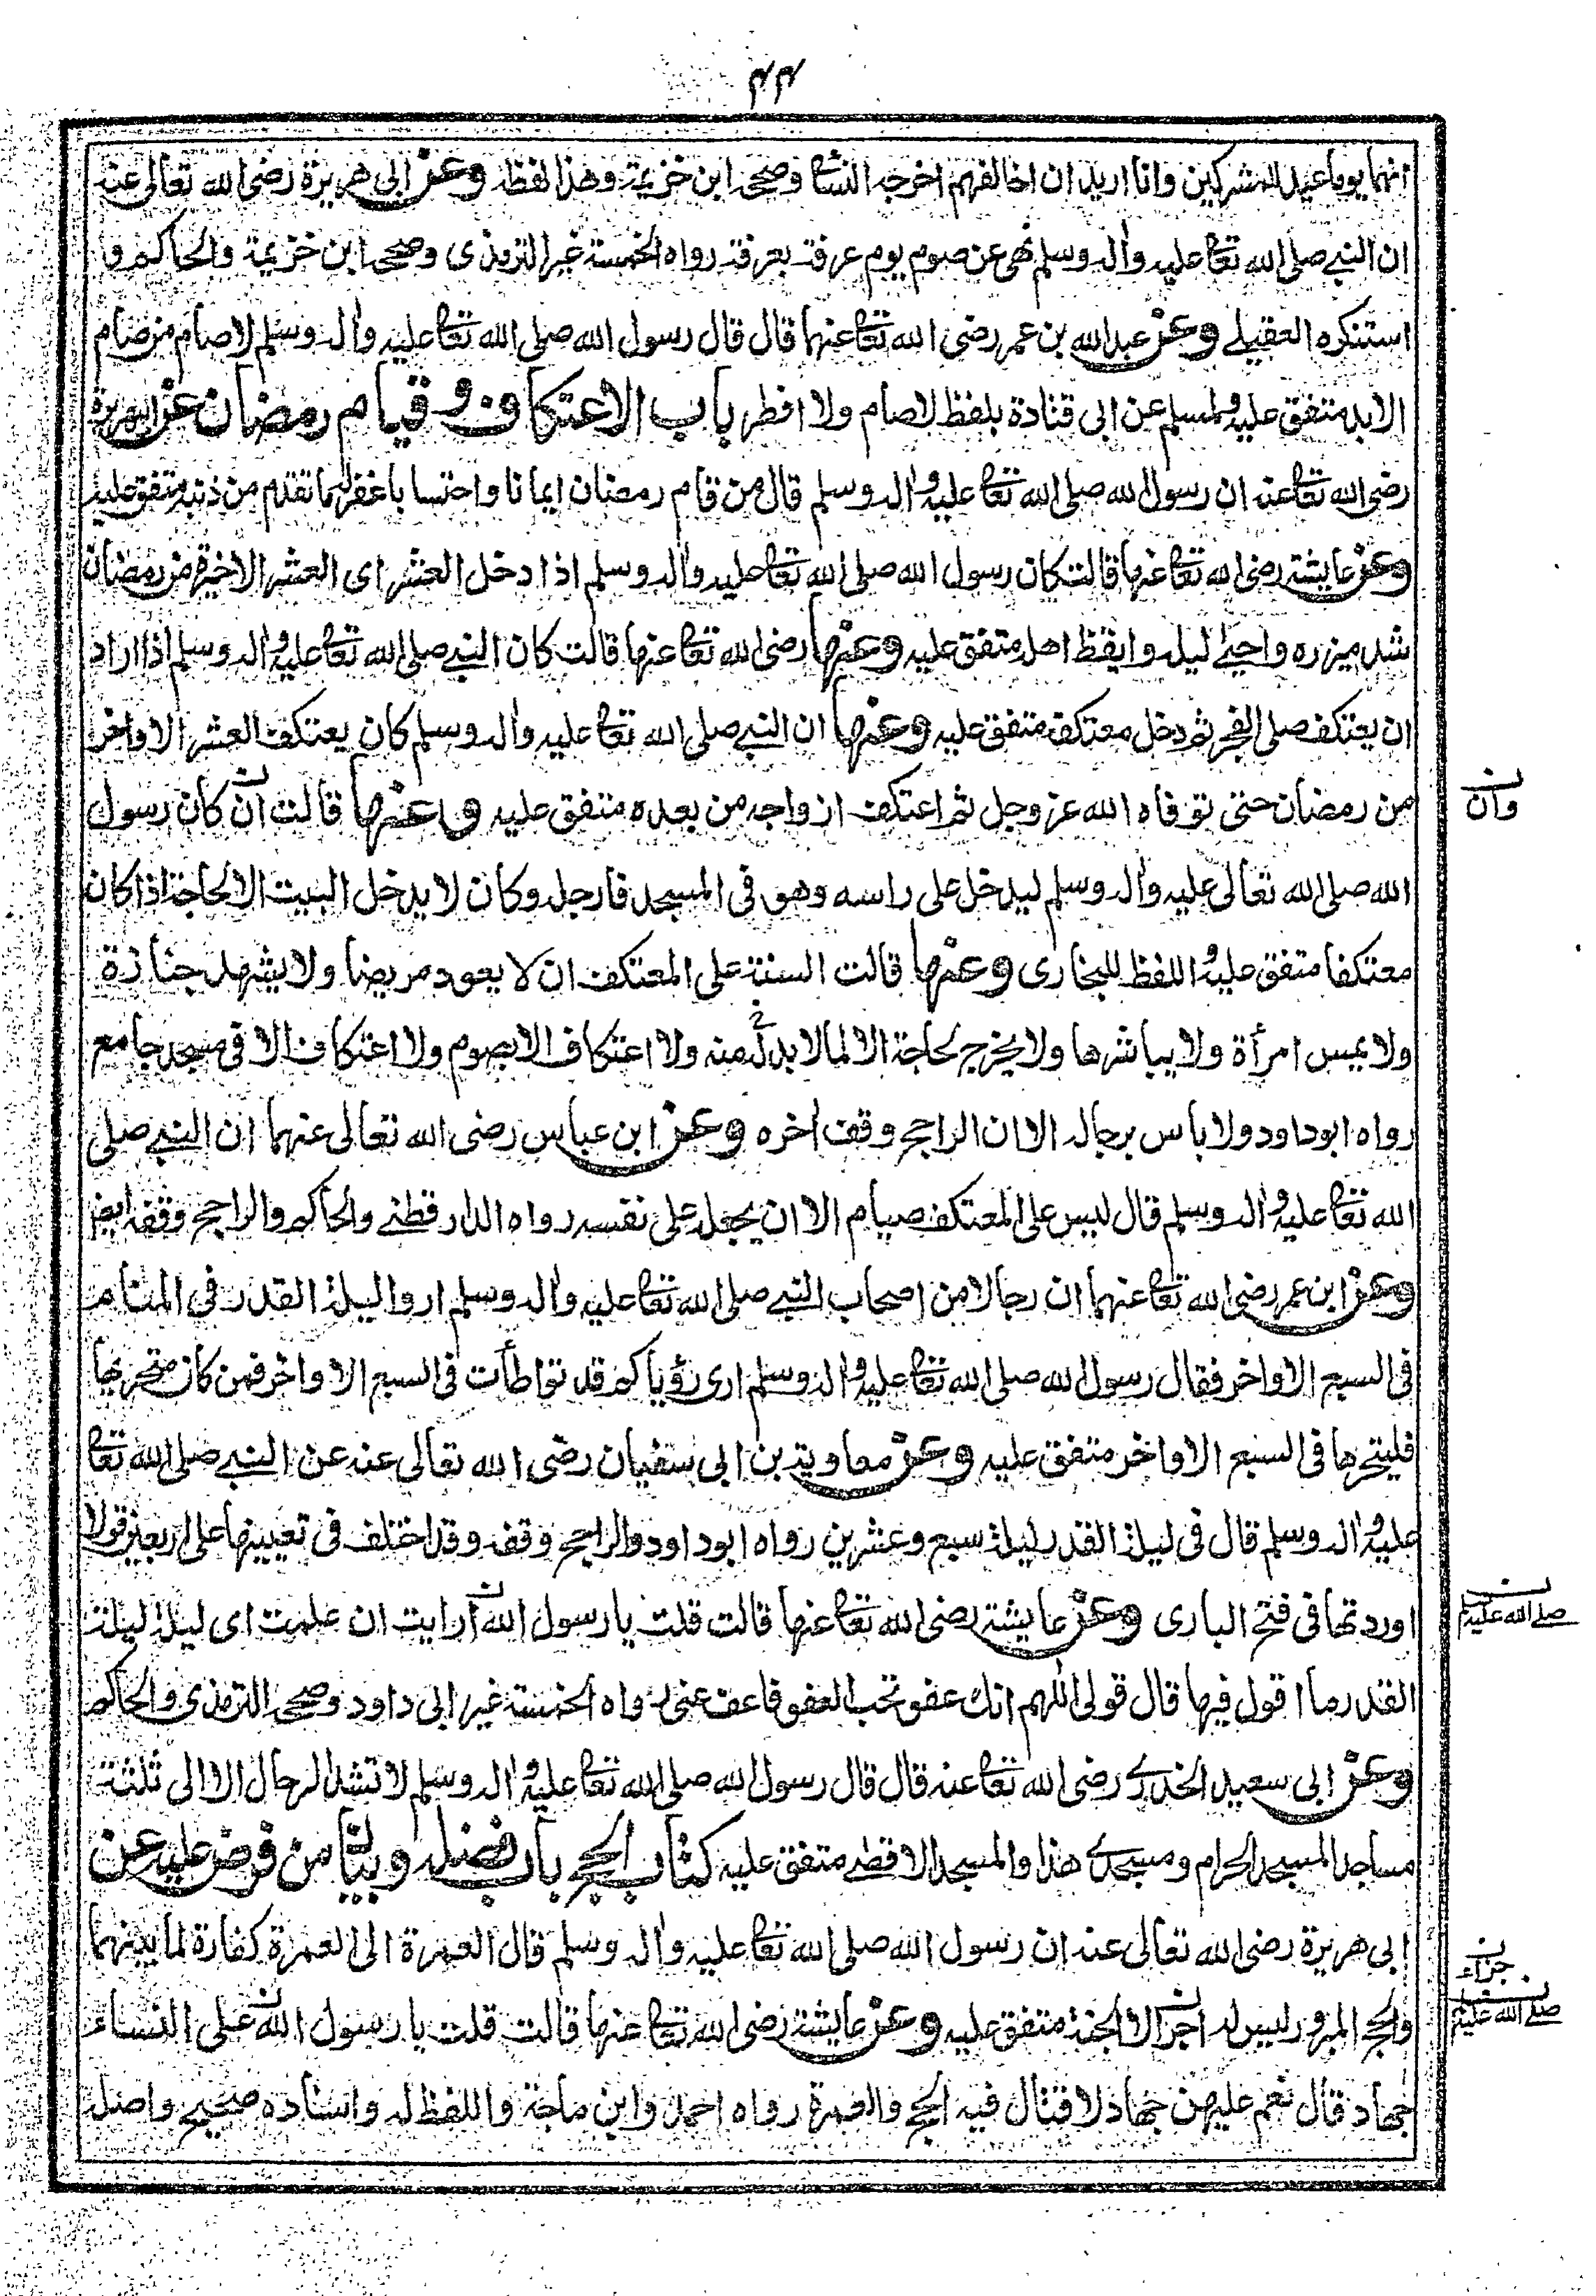 ۴۴
انهما يوما عيد للمشركين وانا اريد ان اخالفهم اخرجه النسائى وصححه ابن خزيمة وهذا لفظه وعن ابى هريرة رضى الله تعالى عنه
ان النبى صلى الله تعالى عليه واله وسلم نهى عن صوم يوم عرفة بعرفة رواه الخمسة غير الترمذى وصححه ابن خزيمة والحاكم وا
استنكره العقيلى وعن عبد الله بن عمر رضى الله تعالى عنهما قال قال رسول الله صلى الله تعالى عليه واله وسلم لا صام من صام
الابد متفق عليه ولمسلم عن ابى قتادة بلفظ لا صام ولا افطر باب الاعتكاف وقيام رمضان عن ابى هريرة
رضى الله تعالى عنه ان رسول الله صلى الله تعالى عليه واله وسلم قال من قام رمضان ايمانا واحتسابا غفر له ما تقدم من ذنبه متفق عليه
وعن عايشة رضى الله تعالى عنها قالت كان رسول الله صلى الله تعالى عليه واله وسلم اذا دخل العشر اى العشر الاخيرة من رمضان
شد ميزره واحيى ليله وايقظ اهله متفق عليه وعنها رضى الله تعالى عنها قالت كان النبى صلى الله تعالى عليه واله وسلم اذا اراد
ان يعتكف صلى الفجر ثم دخل معتكفه متفق عليه وعنها ان النبى صلى الله تعالى عليه واله وسلم كان يعتكف العشر الاواخر
من رمضان حتى توفاه الله عز وجل ثم اعتكف ازواجه من بعده متفق عليه وعنها قالت ان كان رسول
وان
الله صلى الله تعالى عليه واله وسلم ليدخل على راسه وهو فى المسجد فارجله وكان لا يدخل البيت الا لحاجة اذا كان
معتكفا متفق عليه واللفظ للبخارى وعنها قالت السنة على المعتكف ان لا يعود مريضا ولا يشهد جنازة
ولا يمس امرأة ولا يباشرها ولا يخرج لحاجة الا لما لا بد له منه ولا اعتكاف الا بصوم ولا اعتكاف الا فى مسجد جامع
رواه ابوداود ولا باس برجاله الا ان الراجح وقف اخره وعن ابن عباس رضى الله تعالى عنهما ان النبى صلى
الله تعالى عليه واله وسلم قال ليس على المعتكف صيام الا ان يجعله على نفسه رواه الدارقطنى والحاكم والراجح وقفه ايضا
وعن ابن عمر رضى الله تعالى عنهما ان رجالا من اصحاب النبى صلى الله تعالى عليه واله وسلم اروا ليلة القدر فى المنام
فى السبع الاواخر فقال رسول الله صلى الله تعالى عليه واله وسلم ارى رؤياكم قد تواطأت فى السبع الاواخر فمن كان متحريها
فليتحرها فى السبع الاواخر متفق عليه وعن معاوية بن ابى سفيان رضى الله تعالى عنه عن النبى صلى الله تعالى
عليه واله وسلم قال فى ليلة القدر ليلة سبع وعشرين رواه ابوداود والراجح وقفه وقد اختلف فى تعيينها على اربعين قولا
اوردتها فى فتح البارى وعن عايشة رضى الله تعالى عنها قالت قلت يا رسول الله أرايت ان علمت اى ليلة ليلة
صلى الله عليه وسلم
القدر ما اقول فيها قال قولى اللهم انك عفو تحب العفو فاعف عنى رواه الخمسة غير ابى داود وصححه الترمذى والحاكم
وعن ابى سعيد الخدرى رضى الله تعالى عنه قال قال رسول الله صلى الله تعالى عليه واله وسلم لا تشد الرحال الا الى ثلثة
مساجد المسجد الحرام ومسجدى هذا والمسجد الاقصى متفق عليه كتاب الحج باب فضله وبيان من فرض عليه عن
ابى هريرة رضى الله تعالى عنه ان رسول الله صلى الله تعالى عليه واله وسلم قال العمرة الى العمرة كفارة لما بينهما
جزاء
والحج المبرور ليس له اجر الا الجنة متفق عليه وعن عايشة رضى الله تعالى عنها قالت قلت يا رسول الله على النساء
صلى الله عليه وسلم
جهاد قال نعم عليهن جهاد لا قتال فيه الحج والعمرة رواه احمد وابن ماجة واللفظ له واسناده صحيح واصله